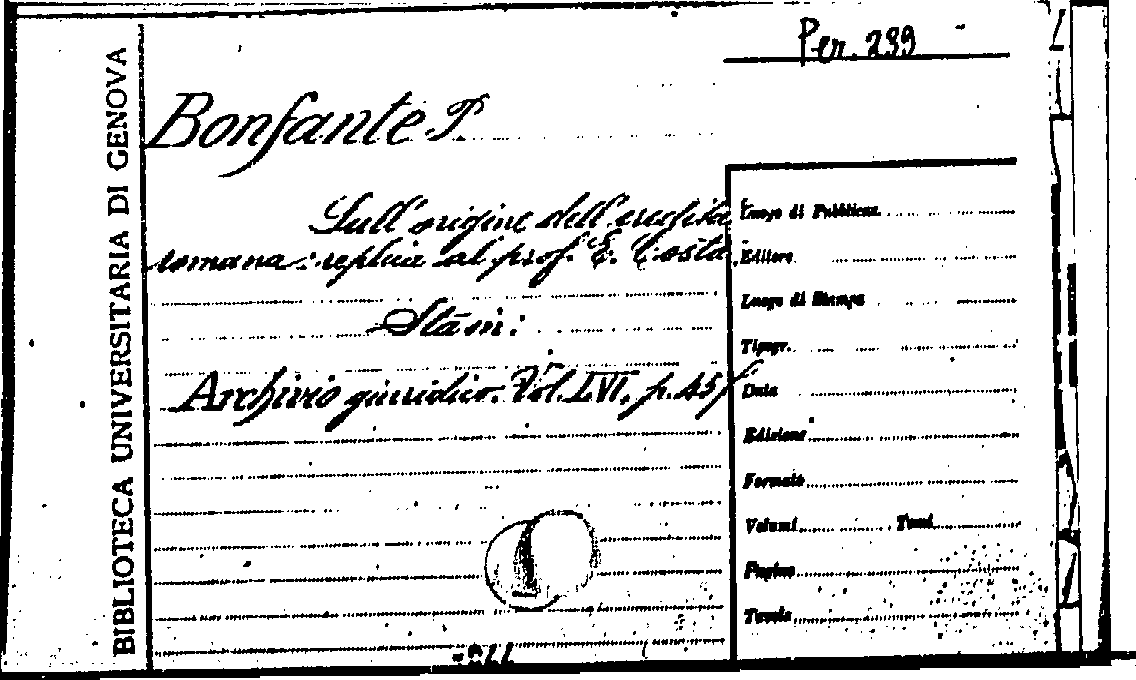 Per. 299
BIBLIOTECA UNIVERSITARIA DI GENOVA
Bonfante P.
Sull'origine dell'eredità
romana: replica al prof. E. Costa.
Sta in:
Archivio giuridico. Vol. LVI, p. 457
Luogo di Pubblicaz.
Editore
Luogo di Stampa
Tipogr.
Data
Edizione
Formato
Volumi Tomi
Pagine
Tavole